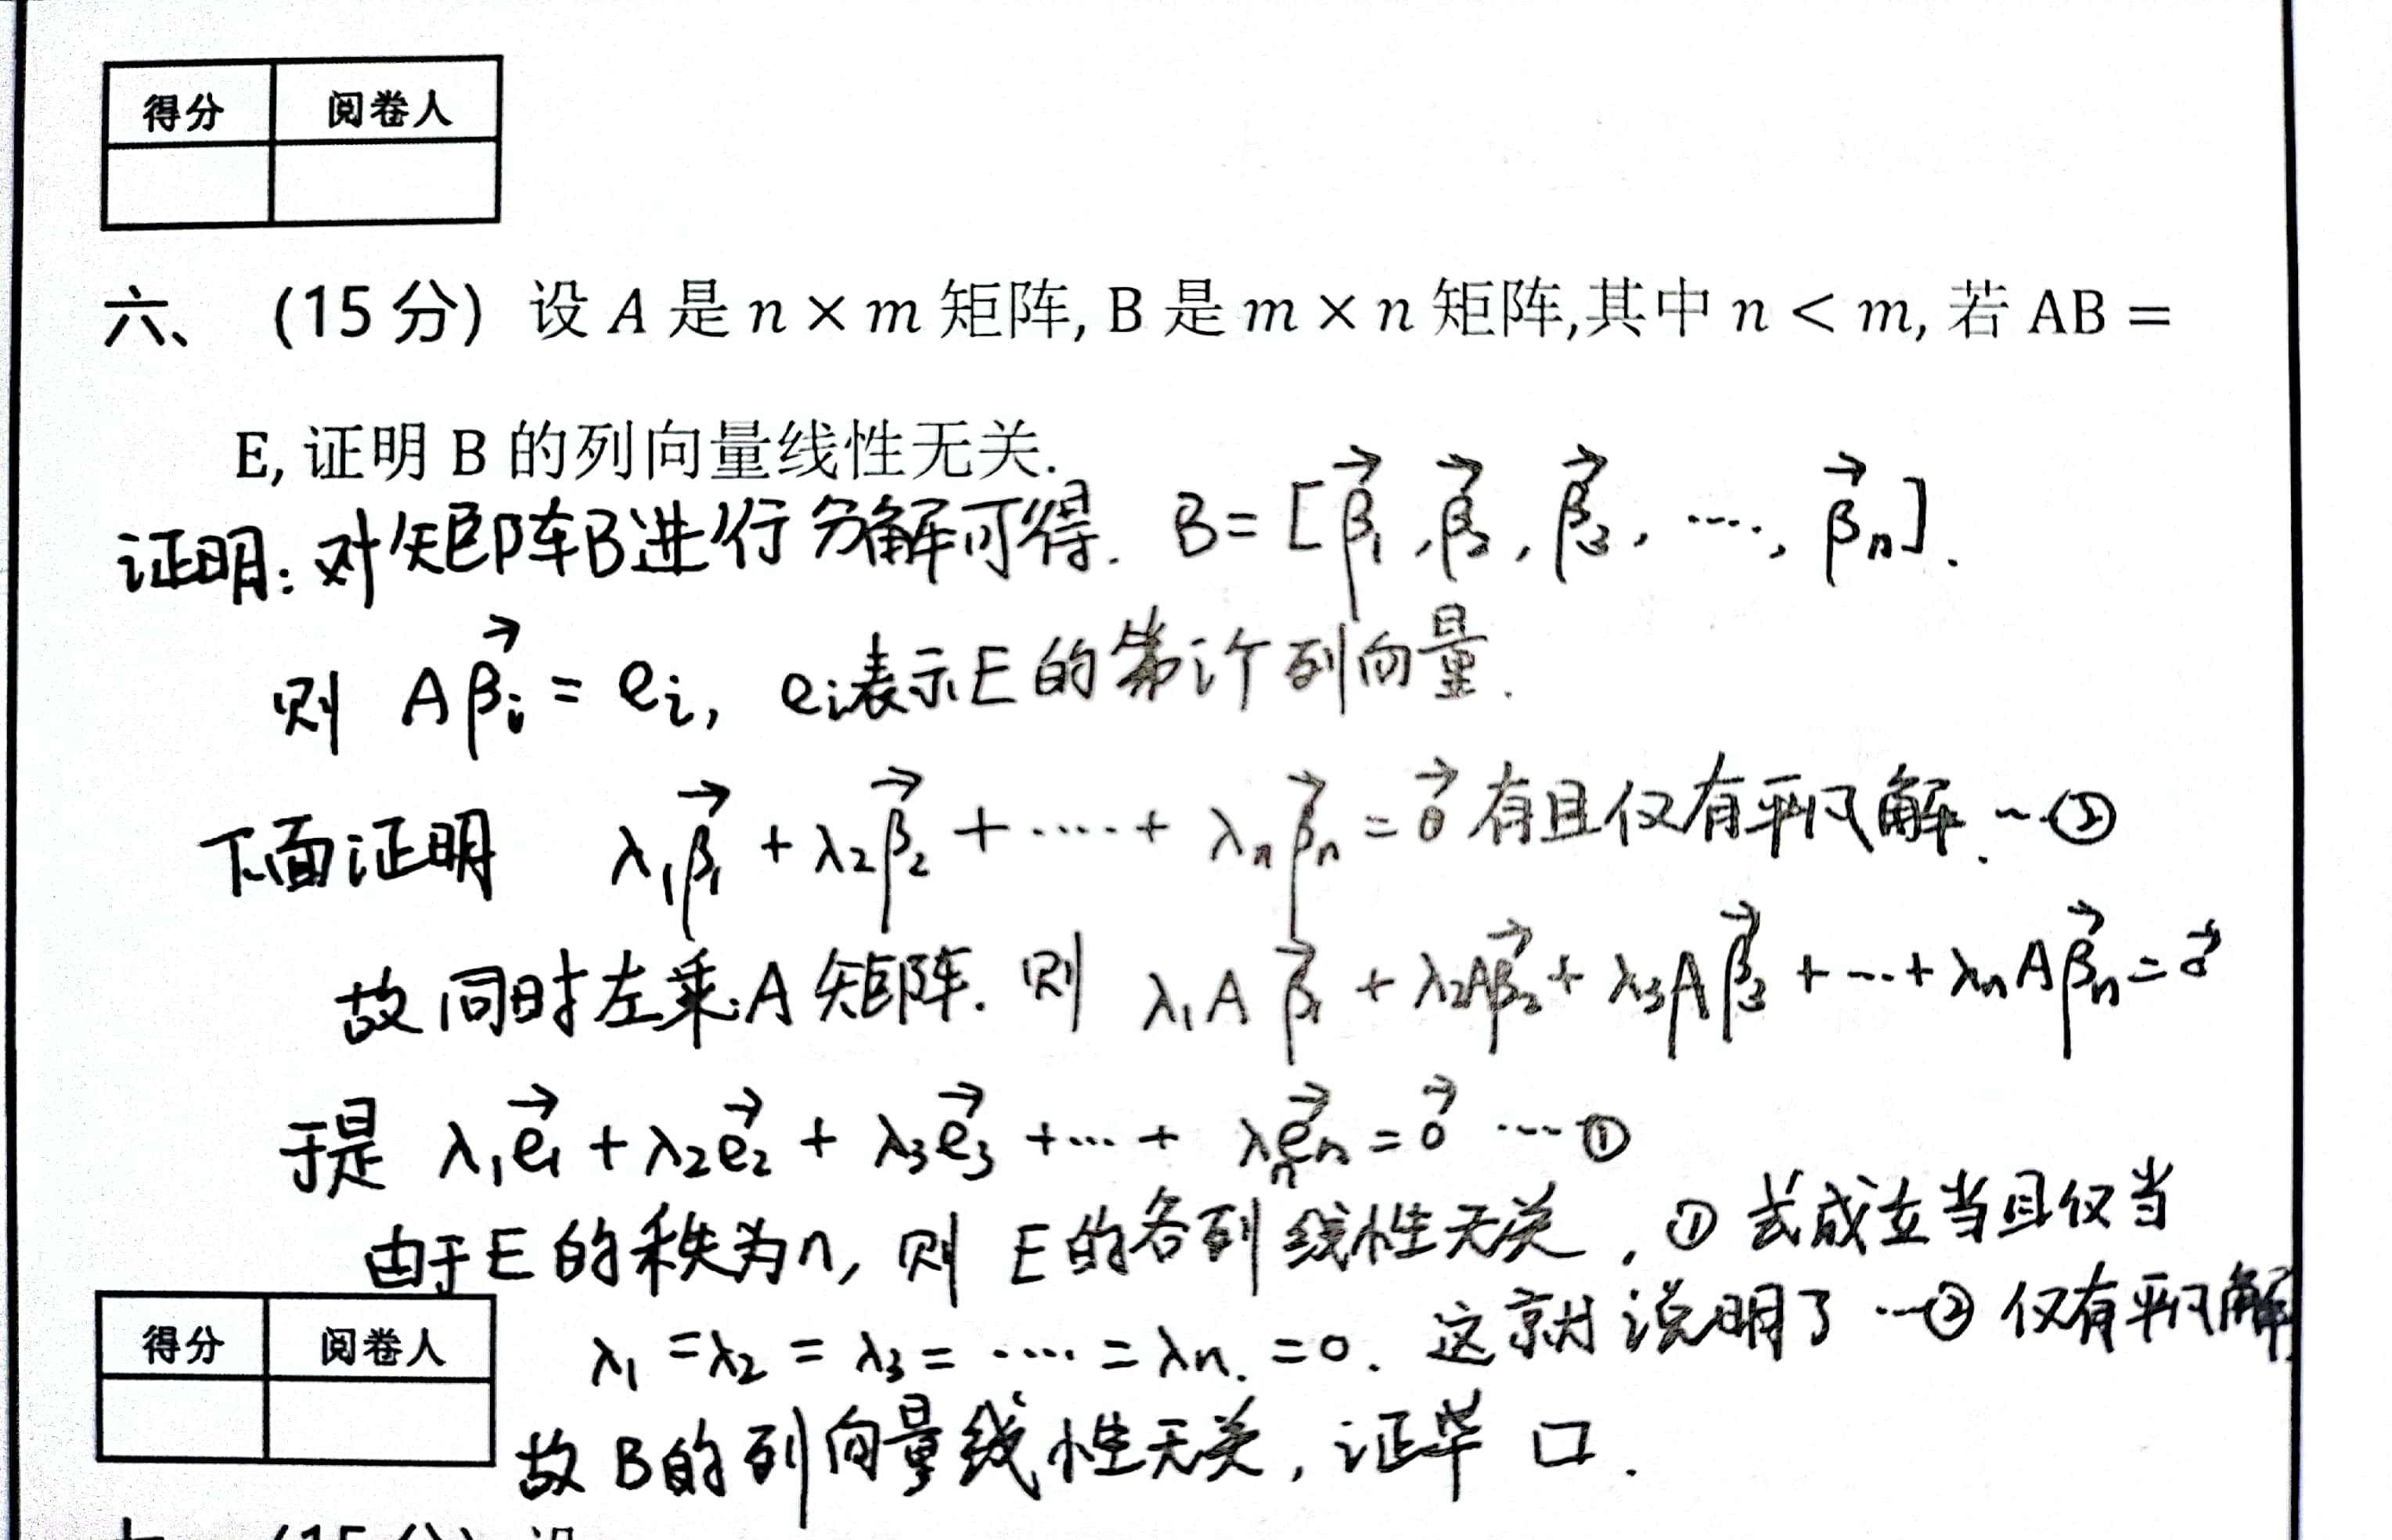 得分 阅卷人
六、 (15 分) 设 A 是 n × m 矩阵, B 是 m × n 矩阵,其中 n < m, 若 AB =
E, 证明 B 的列向量线性无关.
证明: 对矩阵B进行分解可得. B = [β⃗₁, β⃗₂, β⃗₃, ···, β⃗ₙ].
则 Aβ⃗ᵢ = eᵢ, eᵢ表示E的第i个列向量.
下面证明 λ₁β⃗₁ + λ₂β⃗₂ + ····· + λₙβ⃗ₙ = 0⃗ 有且仅有平凡解. ··②
故同时左乘A矩阵. 则 λ₁Aβ⃗₁ + λ₂Aβ⃗₂ + λ₃Aβ⃗₃ + ··· + λₙAβ⃗ₙ = 0⃗
于是 λ₁e⃗₁ + λ₂e⃗₂ + λ₃e⃗₃ + ··· + λₙe⃗ₙ = 0⃗ ····①
由于E的秩为n, 则 E的各列线性无关, ①式成立当且仅当
得分 阅卷人
λ₁ = λ₂ = λ₃ = ···· = λₙ. = 0. 这就说明了 ···② 仅有平凡解
故 B的列向量线性无关, 证毕 □.